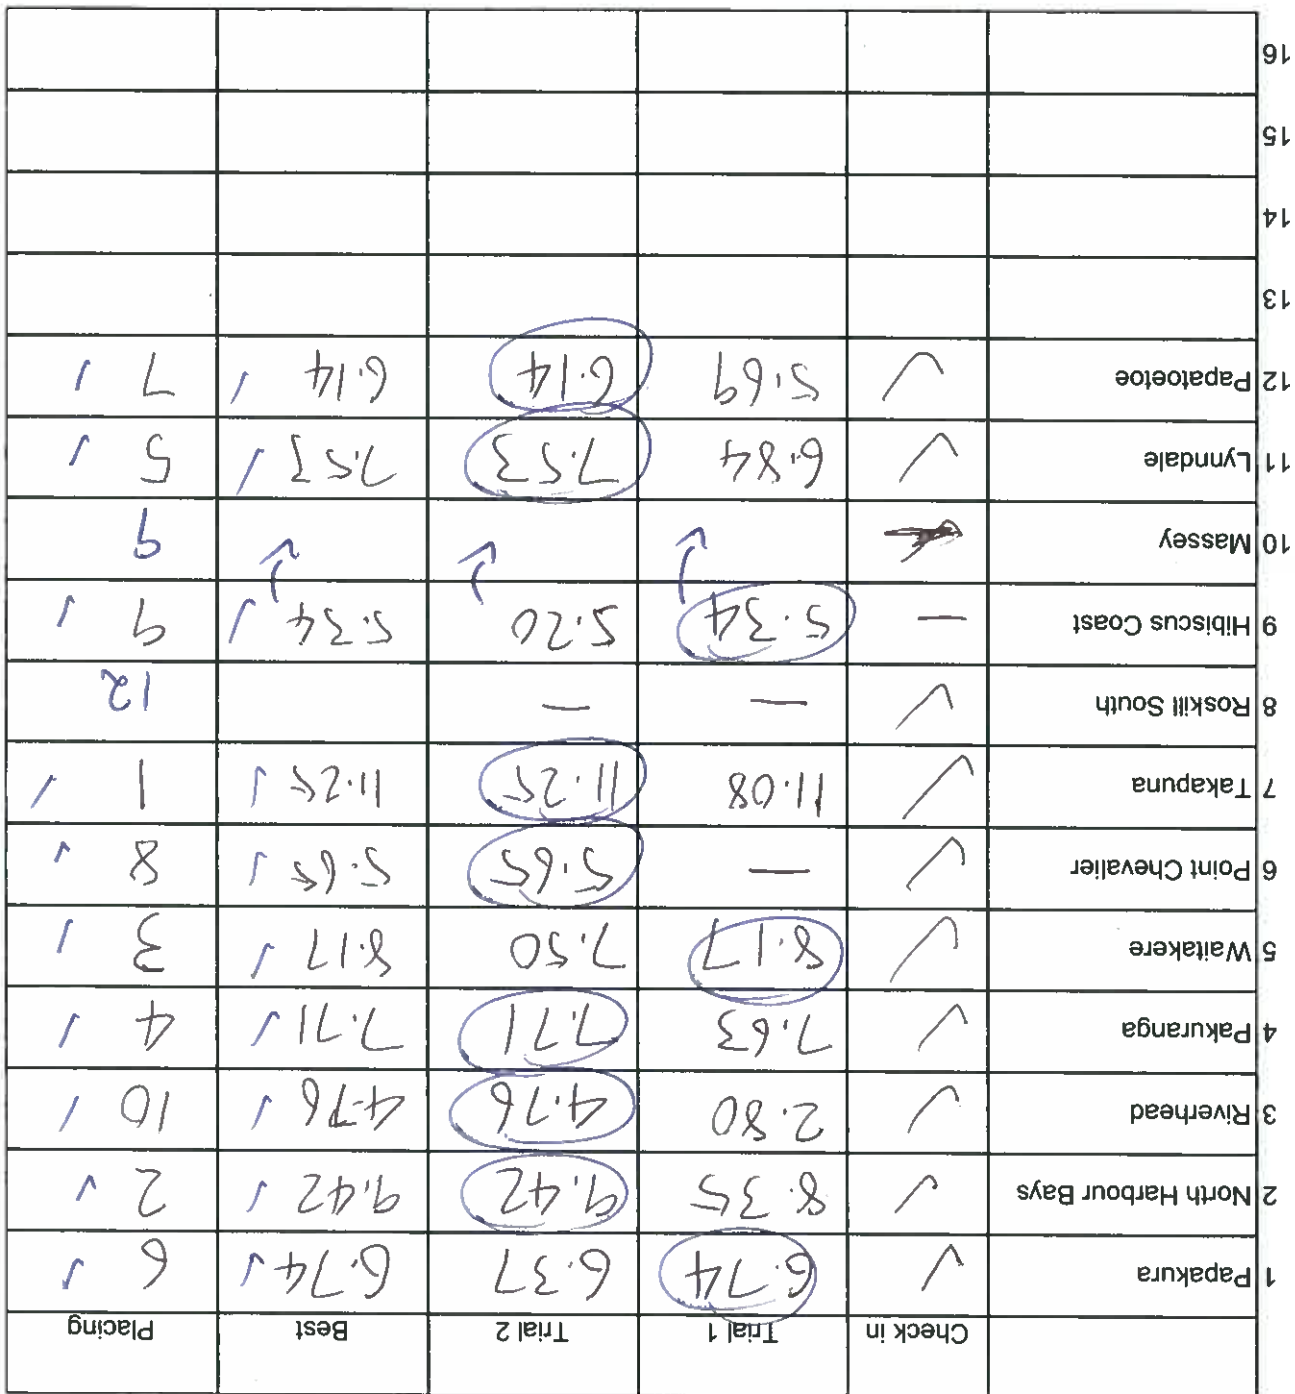 Check in Trial 1 Trial 2 Best Placing
1 Papakura ✓ 6.74 6.37 6.74 ✓ 6 ✓
2 North Harbour Bays ✓ 8.35 9.42 9.42 ✓ 2 ✓
3 Riverhead ✓ 2.80 4.76 4.76 ✓ 10 ✓
4 Pakuranga ✓ 7.63 7.71 7.71 ✓ 4 ✓
5 Waitakere ✓ 8.17 7.50 8.17 ✓ 3 ✓
6 Point Chevalier ✓ — 5.65 5.65 ✓ 8 ✓
7 Takapuna ✓ 11.08 11.25 11.25 ✓ 1 ✓
8 Roskill South ✓ — — 12
9 Hibiscus Coast — 5.34 5.20 5.34 ✓ 9 ✓
10 Massey 9
11 Lynndale ✓ 6.84 7.53 7.53 ✓ 5 ✓
12 Papatoetoe ✓ 5.69 6.14 6.14 ✓ 7 ✓
13
14
15
16